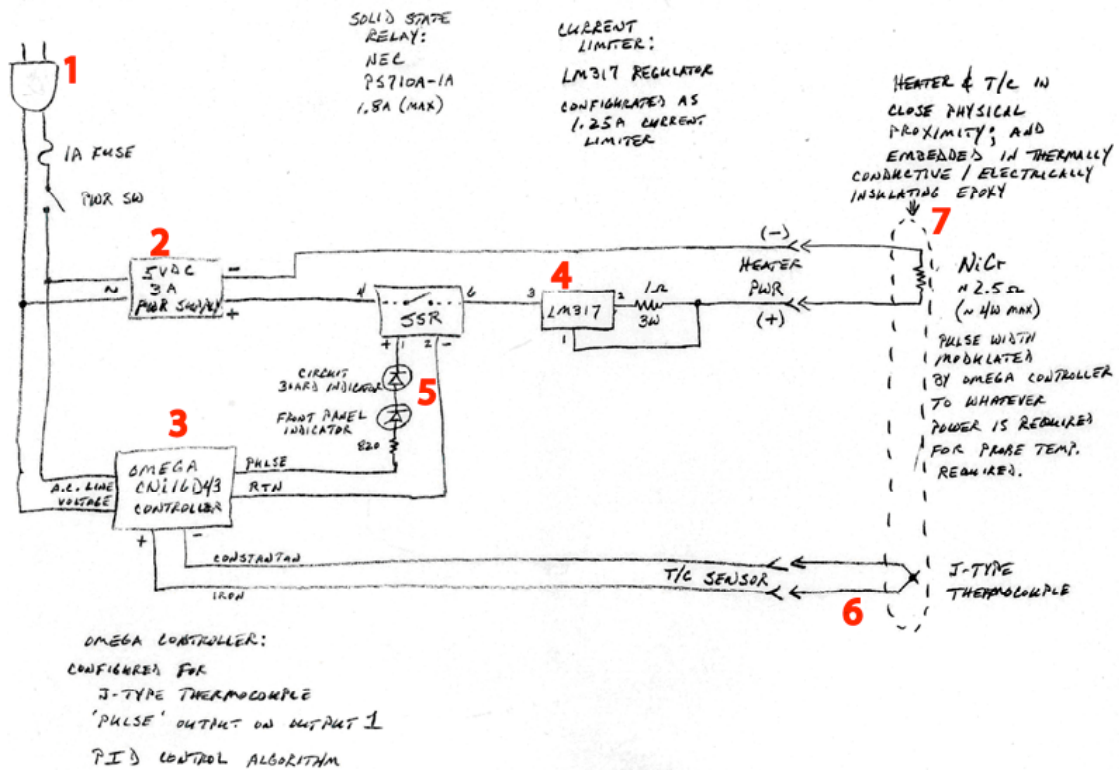 SOLID STATE
RELAY:
NEC
PS710A-1A
1.8A (MAX)
CURRENT
LIMITER:
LM317 REGULATOR
CONFIGURATED AS
1.25A CURRENT
LIMITER
HEATER & T/C IN
CLOSE PHYSICAL
PROXIMITY; AND
EMBEDDED IN THERMALLY
CONDUCTIVE / ELECTRICALLY
INSULATING EPOXY
1
1A FUSE
PWR SW
2
5VDC
3A
PWR SUPPLY
~
-
+
4
SSR
6
+ 1
2 -
4
3
LM317
2
1
1Ω
3W
(-)
HEATER
PWR
(+)
7
NiCr
~2.5Ω
(~4W MAX)
PULSE WIDTH
MODULATED
BY OMEGA CONTROLLER
TO WHATEVER
POWER IS REQUIRED
FOR PROBE TEMP.
REQUIRED.
CIRCUIT
BOARD INDICATOR
5
FRONT PANEL
INDICATOR
820
3
OMEGA
CNi16D43
CONTROLLER
A.C. LINE
VOLTAGE
PULSE
RTN
+
-
CONSTANTAN
IRON
T/C SENSOR
6
J-TYPE
THERMOCOUPLE
OMEGA CONTROLLER:
CONFIGURED FOR
J-TYPE THERMOCOUPLE
'PULSE' OUTPUT ON OUTPUT 1
PID CONTROL ALGORITHM